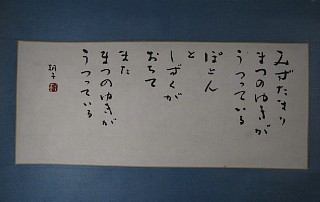 みずたまり
まつのゆきが
うつっている
ぽとん
と
しずくが
おちて
また
まつのゆきが
うつっている